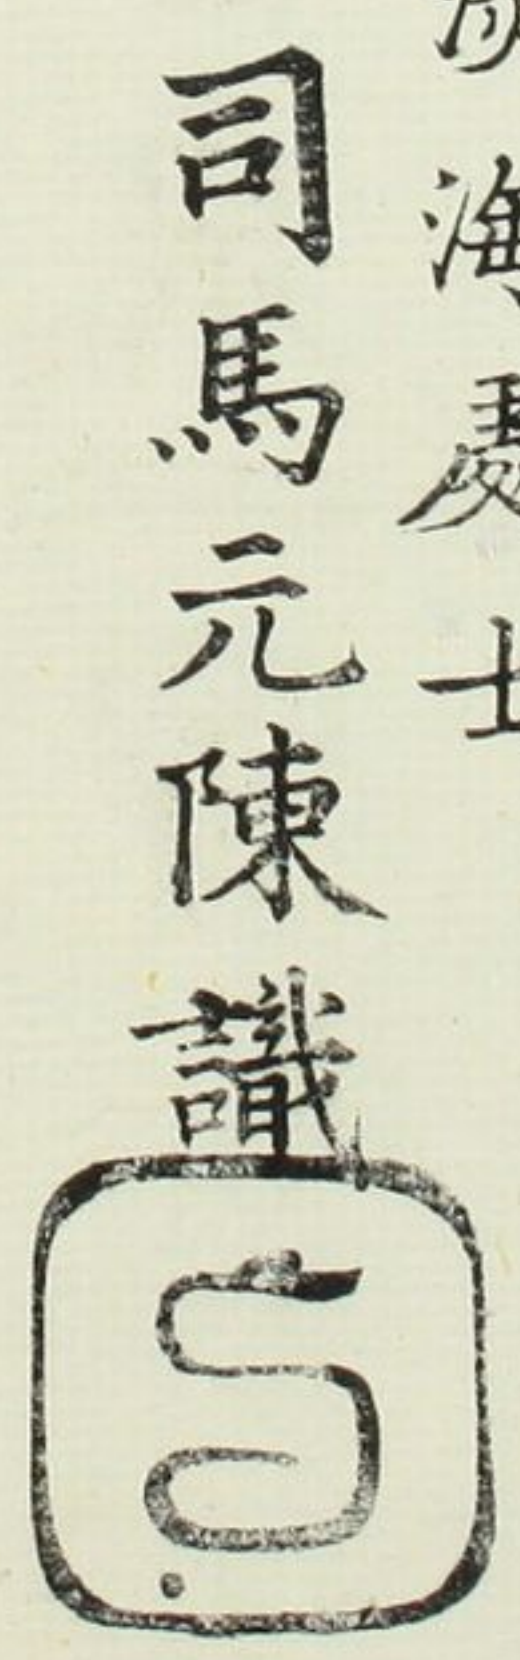 海處士
司馬元陳識